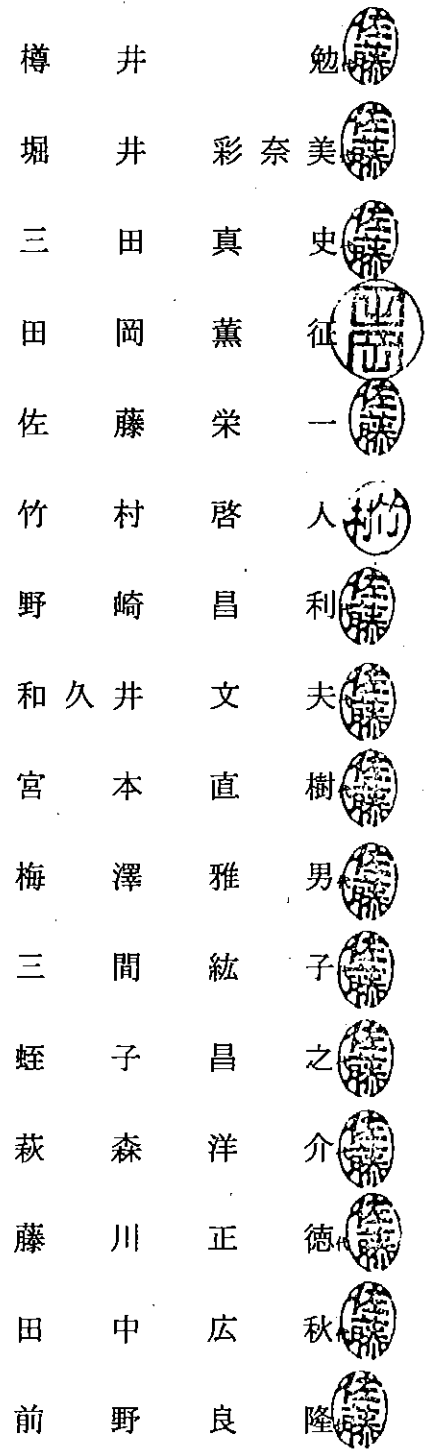 樽井勉 佐藤
堀井彩奈美 佐藤
三田真史 代 佐藤
田岡薫征 田岡
佐藤栄一 佐藤
竹村啓人 竹村
野崎昌利 代 佐藤
和久井文夫 佐藤
宮本直樹 代 佐藤
梅澤雅男 代 佐藤
三間紘子 代 佐藤
蛭子昌之 代 佐藤
萩森洋介 代 佐藤
藤川正徳 代 佐藤
田中広秋 代 佐藤
前野良隆 佐藤